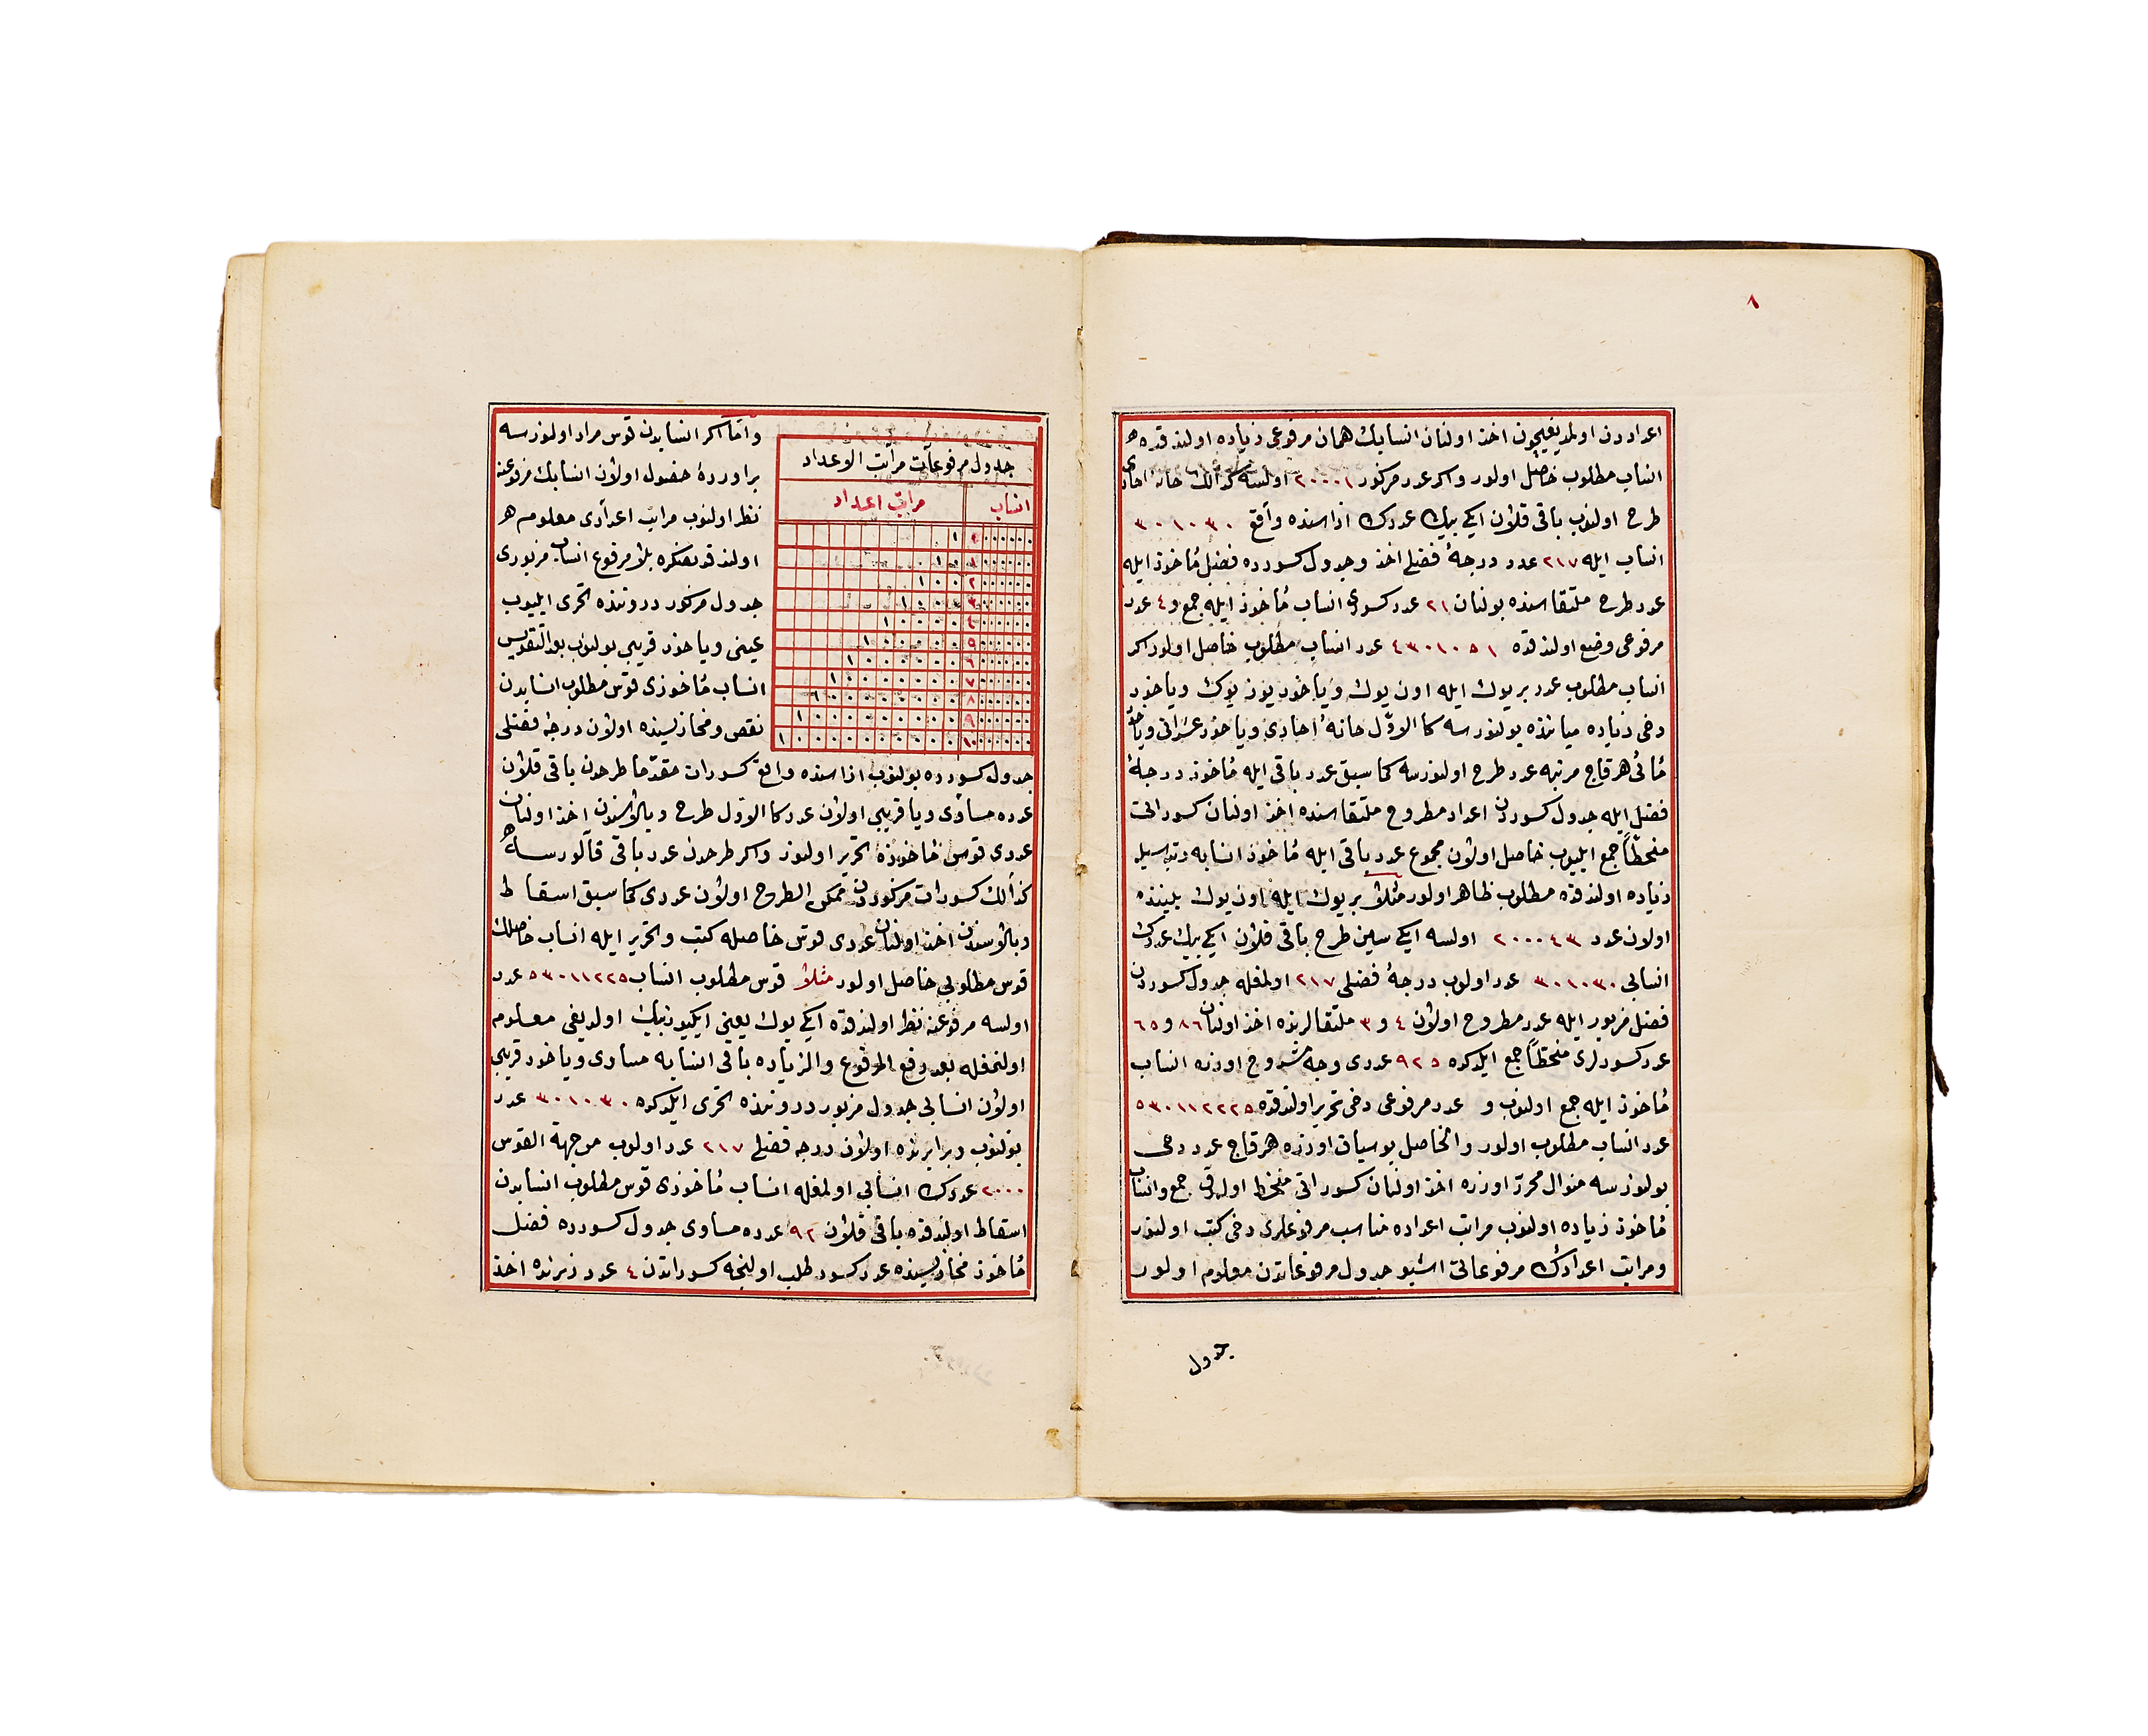 ٨
اعداددن اولمديغيچون اخذ اولنان انسابك همان مرفوعى زياده اولندقده
انساب مطلوب حاصل اولور واكر عدد مزكور ٢٠٠٠١ اولسه كذالك خانهٔ احادى
طرح اولنوب باقى قلان ايكى بيك عددك ازاسنده واقع ٣٠١٠٣٠
انساب ايله ٢١٧ عدد درجهٔ فضلى اخذ وجدول كسورده فضل مأخوذ ايله
عدد طرح ملتقاسنده بولنان ٢١ عدد كسورى انساب مأخوذ ايله جمع و ٤ عدد
مرفوعى وضع اولندقده ٤٣٠١٠٥١ عدد انساب مطلوب حاصل اولور اكر
انساب مطلوب عدد بر يوك ايله اون يوك وياخود يوز يوك وياخود
دخى زياده مياننده بولنورسه كالاول خانهٔ احادى وياخود عشراتى وياخود
مأتى هر قاج مرتبه عدد طرح اولنورسه كما سبق عدد باقى ايله مأخوذ درجهٔ
فضل ايله جدول كسوردن اعداد مطروح ملتقاسنده اخذ اولنان كسوراتى
منحطاً جمع ايليوب حاصل اولان مجموع عدد باقى ايله مأخوذ انسابه
زياده اولندقده مطلوب ظاهر اولور مثلا بر يوك ايله اون يوك بيننده
اولان عدد ٢٠٠٠٤٣ اولسه ايكى سين طرح باقى قلان ايكى بيك عددك
انسابى ٣٠١٠٣٠ عدد اولوب درجهٔ فضلى ٢١٧ اولمغله جدول كسوردن
فضل مزبور ايله عدد مطروح اولان ٤ و ٣ ملتقالرنده اخذ اولنان ٨٦ و ٦٥
عدد كسورلرى منحطاً جمع ايلدكده ٩٢٥ عددى وجه مشروح اوزره انساب
مأخوذ ايله جمع اولنوب و عدد مرفوعى دخى تحرير اولندقده ٥٣٠١١٢٢٢٥
عدد انساب مطلوب اولور والحاصل بو سياق اوزره هر قاج عدد دخى
بولنورسه منوال محرر اوزره اخذ اولنان كسوراتى منحط اولهرق جمع وانساب
مأخوذ زياده اولنوب مراتب اعداده مناسب مرفوعلرى دخى كتب اولنور
ومراتب اعدادك مرفوعاتى اشبو جدول مرفوعاتدن معلوم اولور
جدول
جدول مرفوعات مراتب الاعداد
انساب مراتب اعداد
واما اكر انسابدن قوس مراد اولنورسه
براوردهٔ حصول اولان انسابك مرفوعنه
نظر اولنوب مراتب اعدادى معلوم
اولندقدنصكره بلا مرفوع انساب مزبورى
جدول مزكور دروننده تحرى ايليوب
عينى وياخود قريبى بولنوب بعد التقويس
انساب مأخوذى قوس مطلوب انسابدن
نقص ومحازيسنده اولان درجه فضلى
جدول كسورده بولنوب ازاسنده واقع كسورات مقدما طرحدن باقى قلان
عدده مساوى ويا قريبى اولان عدد كالاول طرح وبالاسندن اخذ اولنان
عددى قوس مأخوذه تحرير اولنور واكر طرحدن عدد باقى قالورسه
كذالك كسورات مزكوردن ممكن الطرح اولان عددى كما سبق اسقاط
وبالاسندن اخذ اولنان عددى قوس حاصله كتب وتحرير ايله انساب حاصلك
قوس مطلوبى حاصل اولور مثلا قوس مطلوب انساب ٥٣٠١١٢٢٥ عدد
اولسه مرفوعنه نظر اولندقده ايكى يوك يعنى ايكيوزبيك اولديغى معلوم
اولنمغله بعد رفع المرفوع والزياده باقى انسابه مساوى وياخود قريبى
اولان انسابى جدول مزبور دروننده تحرى ايلدكده ٣٠١٠٣٠ عدد
بولنوب وبرابرنده اولان درجه فضلى ٢١٧ عدد اولوب من جهة القوس
٢٠٠٠ عددك انسابى اولمغله انساب مأخوذى قوس مطلوب انسابدن
اسقاط اولندقده باقى قلان ٩٢ عدده مساوى جدول كسورده فضل
مأخوذ محازيسنده عدد كسور طلب اولنجه كسوراتدن ٤ عدد زبرنده اخذ